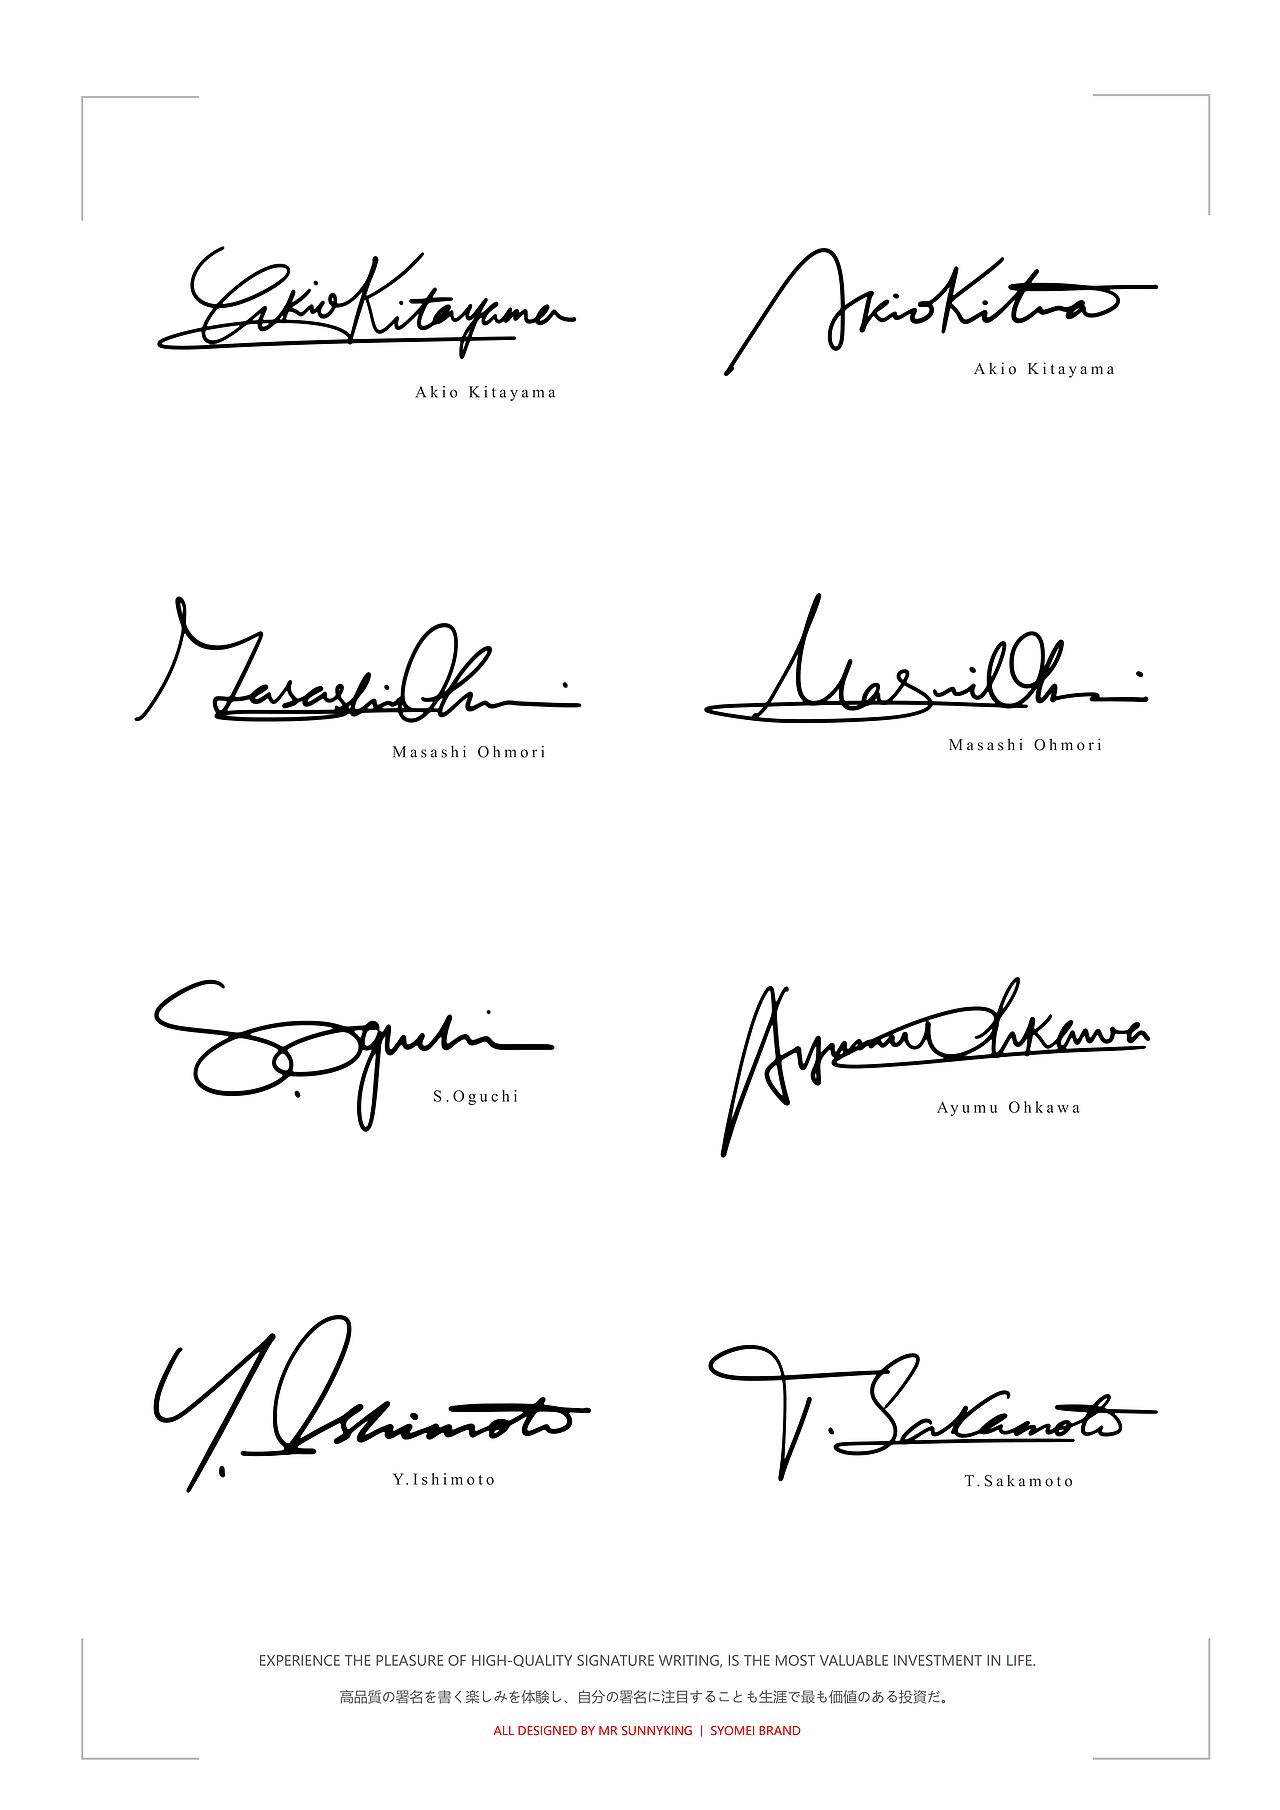 Akio Kitayama
Akio Kitayama
Akio Kitayama
Masashi Ohmori
Masashi Ohmori
Masashi Ohmori
S.Oguchi
Ayumu Ohkawa
S.Oguchi
Ayumu Ohkawa
Y.Ishimoto
T.Sakamoto
Y.Ishimoto
T.Sakamoto
EXPERIENCE THE PLEASURE OF HIGH-QUALITY SIGNATURE WRITING, IS THE MOST VALUABLE INVESTMENT IN LIFE.
高品質の署名を書く楽しみを体験し、自分の署名に注目することも生涯で最も価値のある投資だ。
ALL DESIGNED BY MR SUNNYKING | SYOMEI BRAND